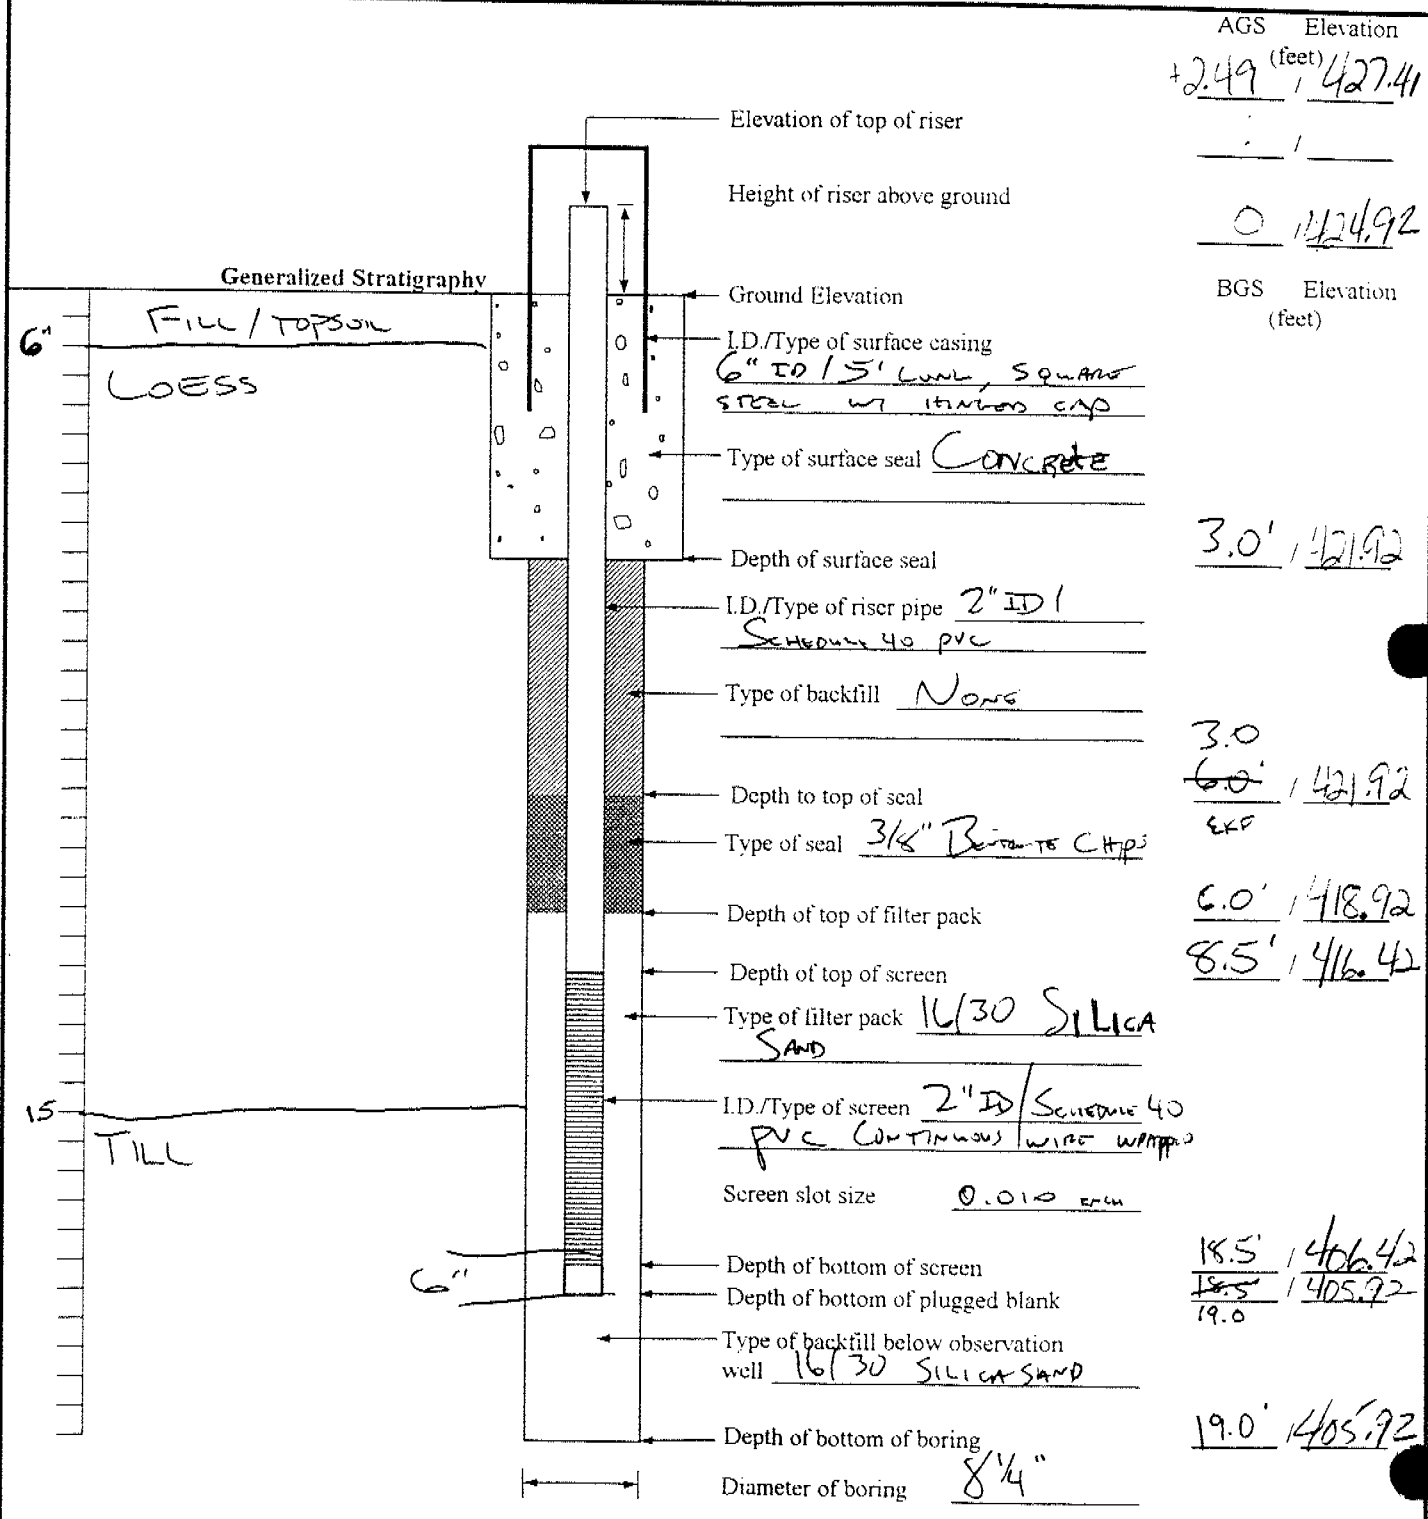 AGS Elevation
(feet)
+2.49 / 427.41
Elevation of top of riser
/
Height of riser above ground
0 / 424.92
Generalized Stratigraphy
Ground Elevation
BGS Elevation
(feet)
FILL / TOPSOIL
6"
I.D./Type of surface casing
LOESS
6" ID / 5' LONG, SQUARE
STEEL W/ HINGED CAP
Type of surface seal CONCRETE
3.0' / 421.92
Depth of surface seal
I.D./Type of riser pipe 2" ID /
SCHEDULE 40 PVC
Type of backfill NONE
3.0
6.0' / 421.92
Depth to top of seal
EKF
Type of seal 3/8" BENTONITE CHIPS
Depth of top of filter pack 6.0' / 418.92
Depth of top of screen 8.5' / 416.42
Type of filter pack 16/30 SILICA
SAND
15
I.D./Type of screen 2" ID / SCHEDULE 40
PVC CONTINUOUS WIRE WRAPPED
TILL
Screen slot size 0.010 INCH
Depth of bottom of screen 18.5' / 406.42
6"
Depth of bottom of plugged blank 18.5 / 405.92
19.0
Type of backfill below observation
well 16/30 SILICA SAND
Depth of bottom of boring 19.0' / 405.92
Diameter of boring 8 1/4"